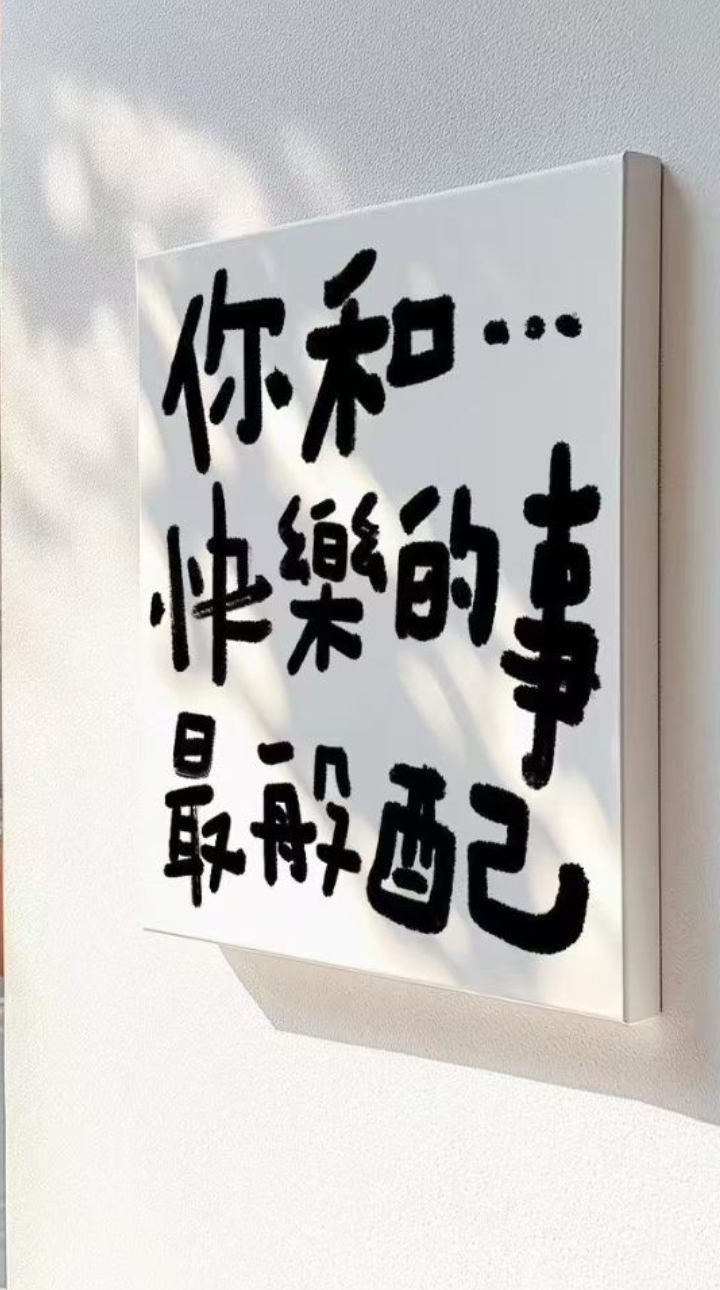 你和…
快樂的事
最般配